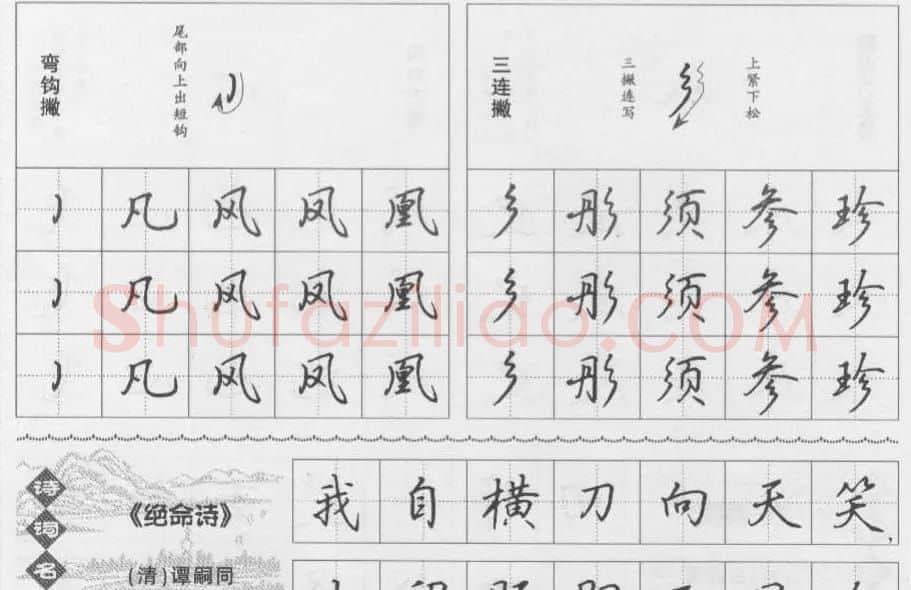 弯钩撇
尾部向上出短钩
凡 风 凤 凰
凡 风 凤 凰
凡 风 凤 凰
三连撇
三撇连写
上紧下松
彡 彤 须 参 珍
彡 彤 须 参 珍
彡 彤 须 参 珍
Shufaziliao.COM
诗词名
《绝命诗》
(清)谭嗣同
我自横刀向天笑,